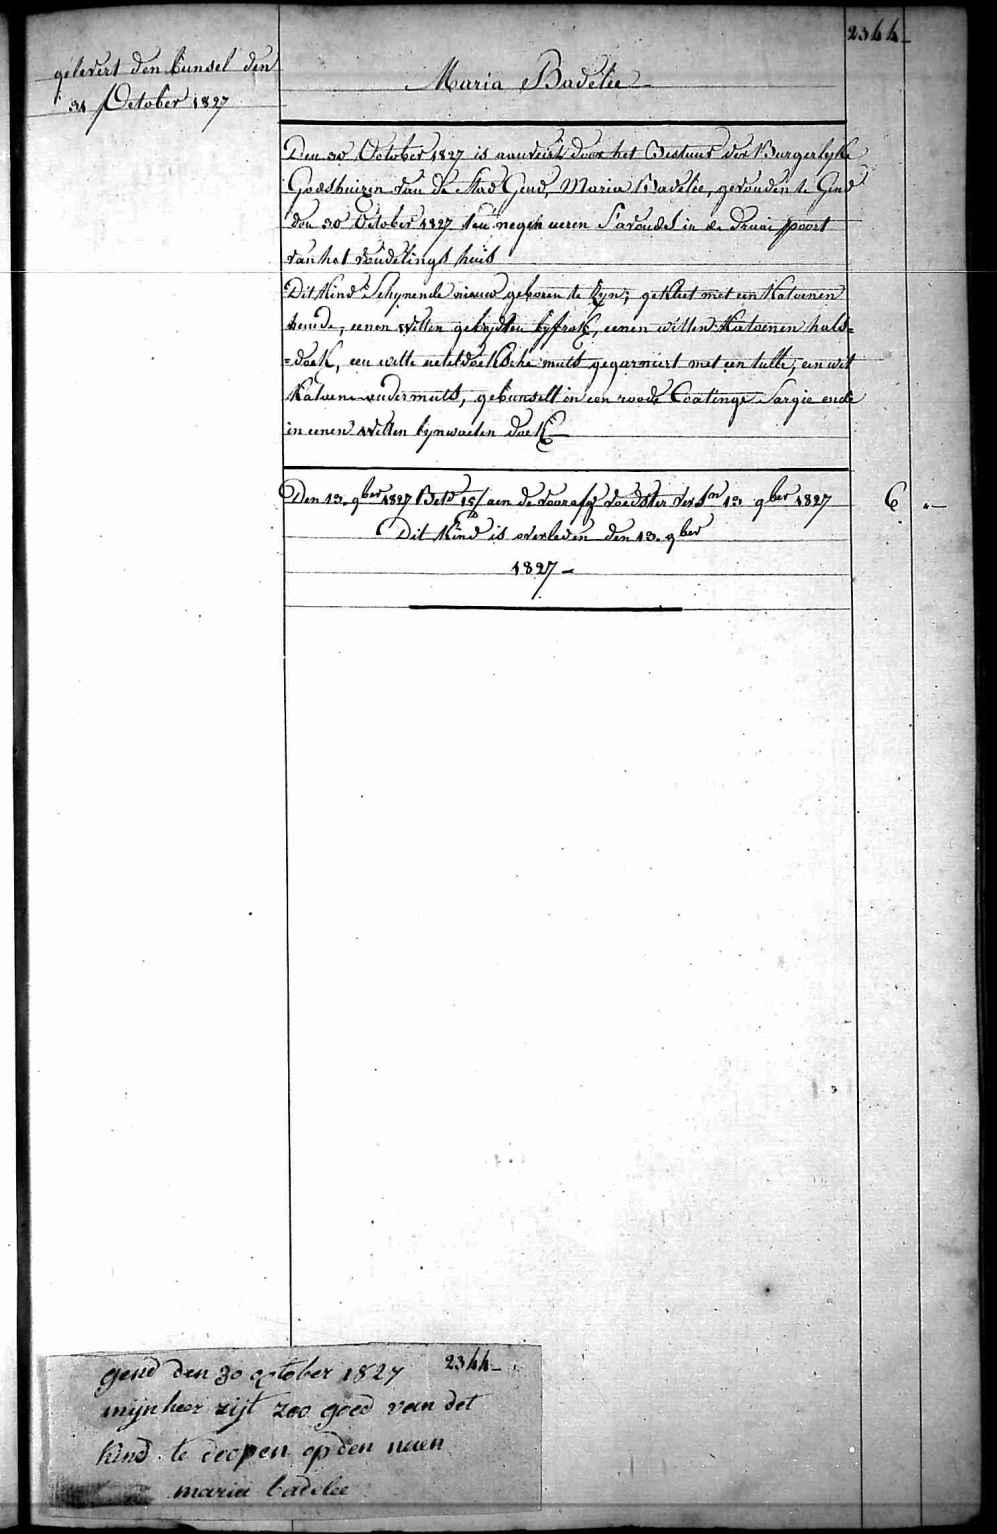 2344
gelevert den bunsel den
31 October 1827
Maria Badelée
Den 30 October 1827 is aanveirt door het Bestuur der Burgerlyke
Godshuizen van de Stad Gend, Maria Badelée, gevonden te Gend
den 30 October 1827 ten negen ueren s'avonds in de Draai poort
van het vondelings huis
Dit Kind schynende nieuw geboren te zyn, gekleet met een Katoenen
hemde, eenen witten lyfrok, eenen witten Katoenen hals=
=doek, een witte neteldoeksche muts gegarniert met een tulle, een wit
Katoene ondermuts, gebunselt in een roode Coatinge Sargie ende
in eenen witten lynwaeten doek
Den 13. 9ber 1827 Bet. 15/ aen de voorafg voedster vers. 13 9ber 1827
6 "
Dit Kind is overleden den 13. 9ber
1827
2344
gend den 30 october 1827
mijn heer zijt zoo goed van det
kind te doopen op den naem
maria badelee